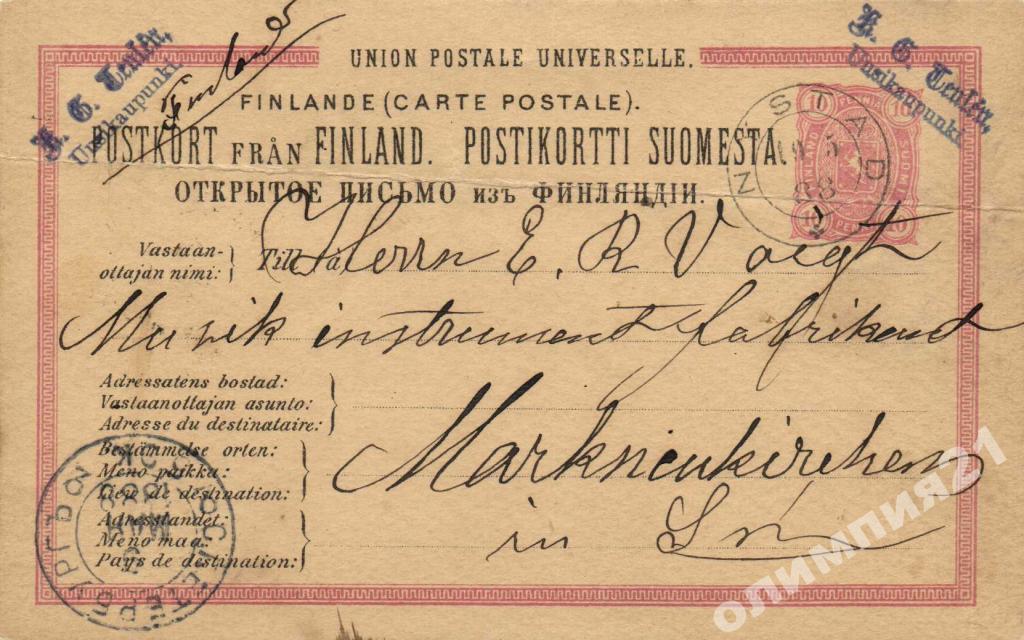 K. G. Tenlén,
Uusikaupunki.
Finland
UNION POSTALE UNIVERSELLE.
K. G. Tenlén,
Uusikaupunki.
FINLANDE (CARTE POSTALE).
POSTKORT FRÅN FINLAND. POSTIKORTTI SUOMESTA.
ОТКРЫТОЕ ПИСЬМО изъ ФИНЛЯНДІИ.
10 PENNIÄ 10
SUOMI
NYSTAD
88
Vastaan-
ottajan nimi:
Till
Herrn E. R Voigt
Musik instrument fabrikant
Adressatens bostad:
Vastaanottajan asunto:
Adresse du destinataire:
Markneukirchen
Bestämmelse orten:
Meno paikka:
Lieu de destination:
Adresslandet:
Meno maa:
Pays de destination:
in
С.ПЕТЕРБУРГЪ
МАЯ
1888
олимпия21